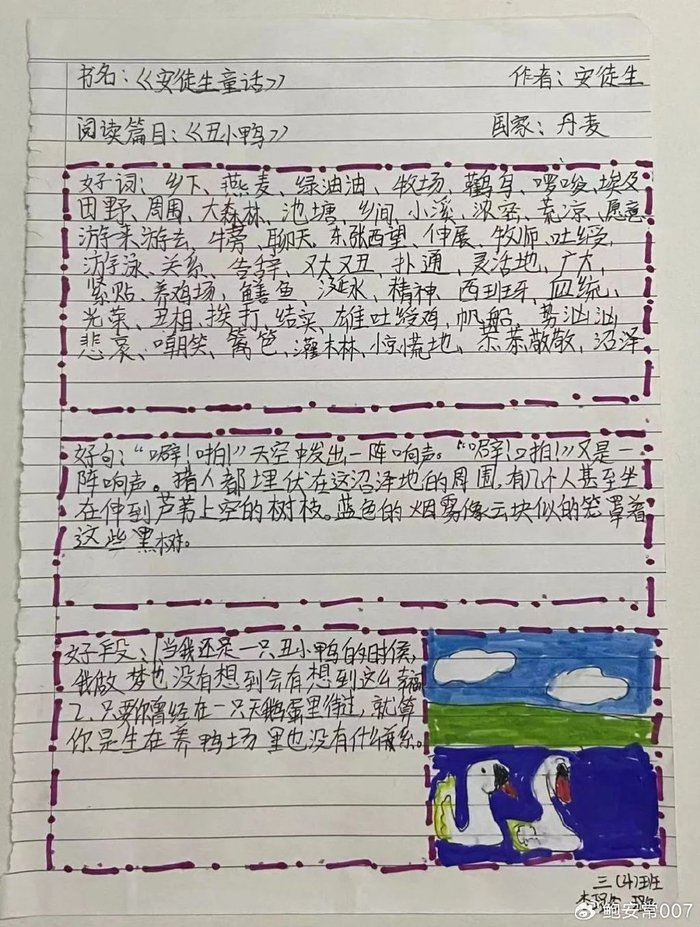 书名：《安徒生童话》 作者：安徒生
阅读篇目：《丑小鸭》 国家：丹麦
好词：乡下、燕麦、绿油油、牧场、鹳鸟、啰唆、埃及
田野、周围、大森林、池塘、乡间、小溪、浓密、荒凉、愿意
游来游去、牛蒡、聊天、东张西望、伸展、牧师、吐绶
游泳、关系、告辞、又大又丑、扑通、灵活地、广大、
紧贴、养鸡场、鳝鱼、涎水、精神、西班牙、血统、
光荣、丑相、挨打、结实、雄吐绶鸡、帆船、势汹汹
悲哀、嘲笑、篱笆、灌木林、惊慌地、恭恭敬敬、沼泽
好句："噼！啪！"天空中发出一阵响声。"噼！啪！"又是一
阵响声。猎人都埋伏在这沼泽地的周围，有几个人甚至坐
在伸到芦苇上空的树枝。蓝色的烟雾像云块似的笼罩着
这些黑树。
好段：1当我还是一只丑小鸭的时候，
我做梦也没有想到会有想到这么幸福
2、只要你曾经在一只天鹅蛋里待过，就算
你是生在养鸭场里也没有什么关系。
三(4)班
鲍安常007